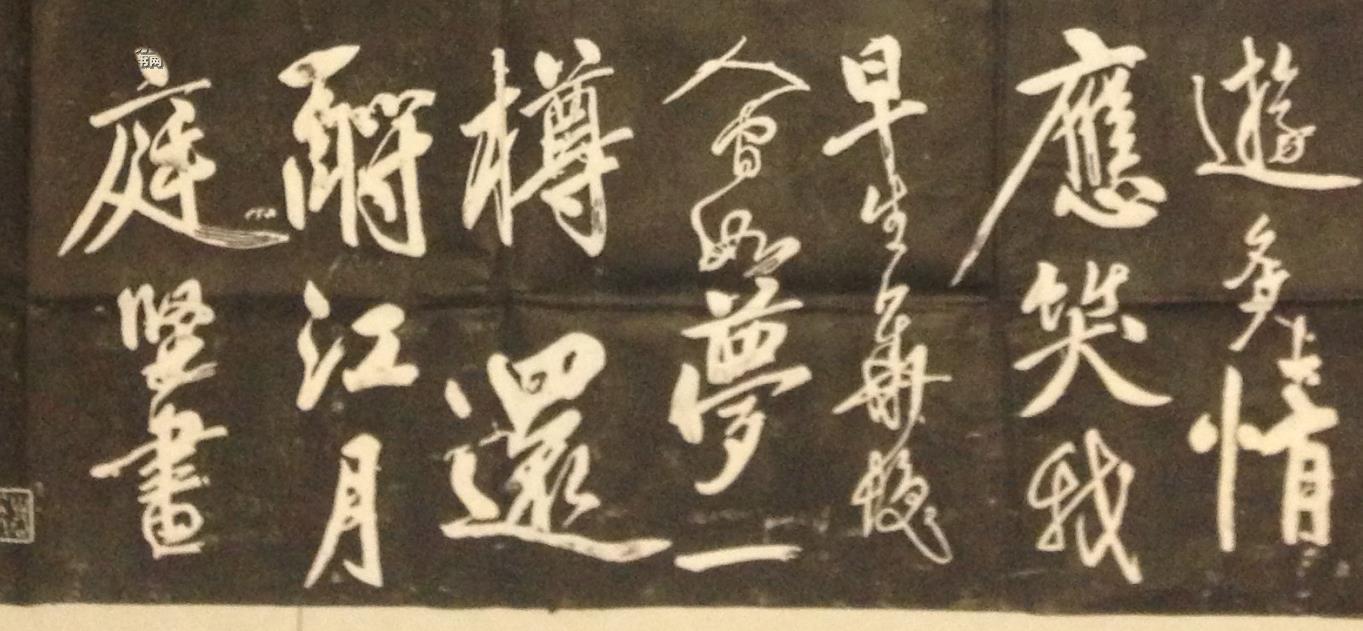 遊多情
應笑我
早生華髮
人間如夢一
樽還
酹江月
庭堅書
书网